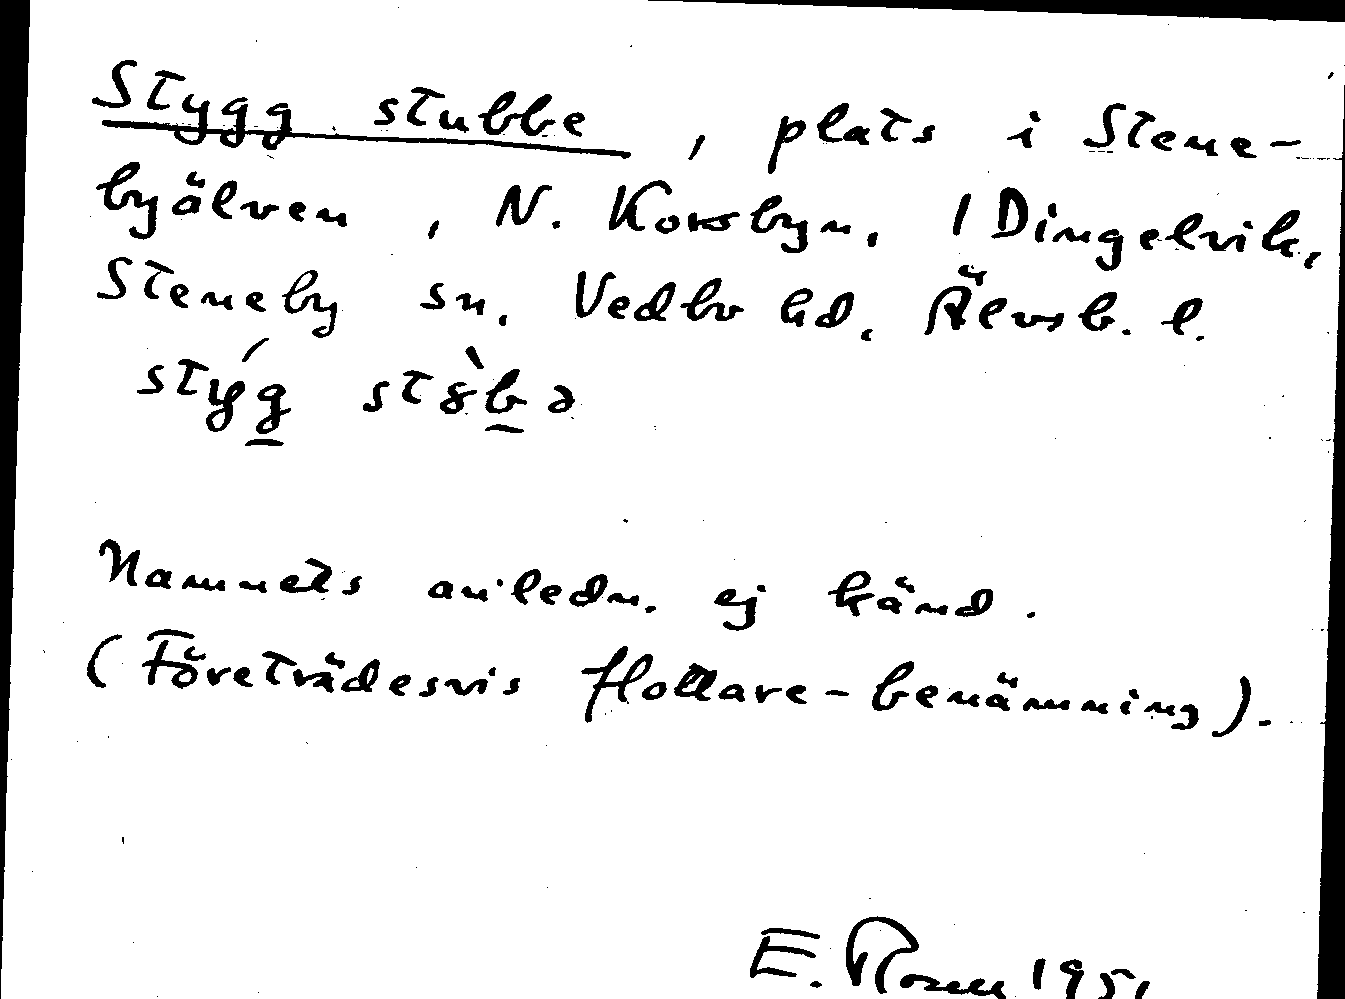 Stygg stubbe, plats i Stene-
byälven, N. Korsbyn, 1 Dingelvik,
Steneby sn, Vedbo hd, Älvsb. l.
stýg stòbə
Namnets anledn. ej känd.
(Företrädesvis flottare-benämning).
E. 1951